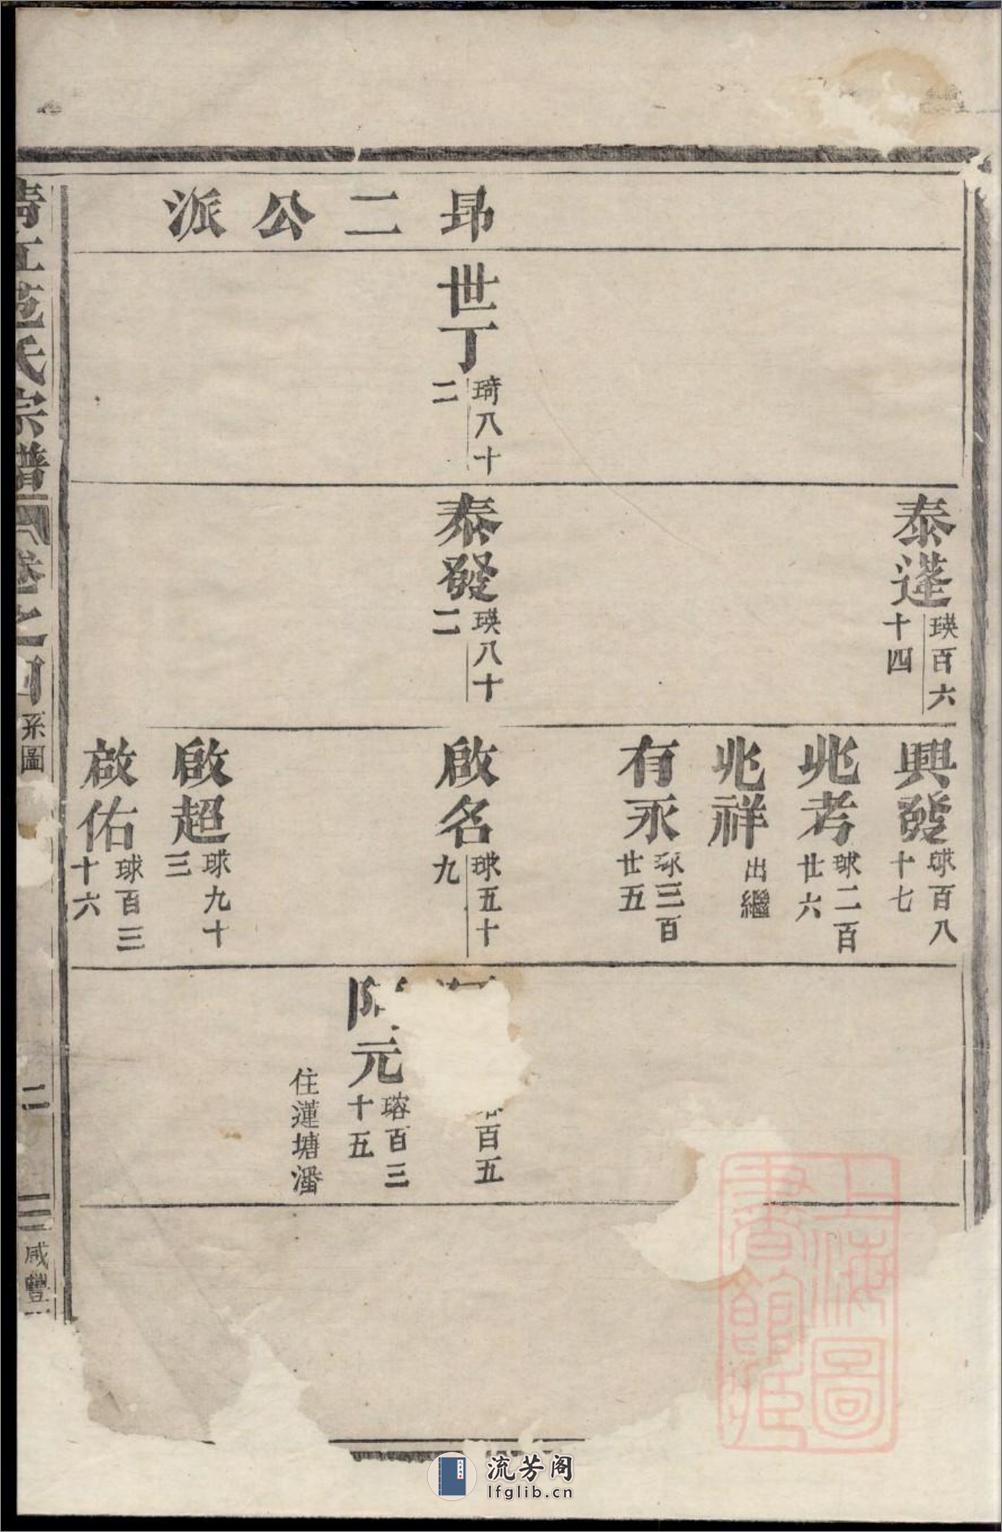 昂二公派
世丁
琦八十
二
泰蓬
瑛百六
十四
泰發
瑛八十
二
興發
球百八
十七
兆考
球二百
廿六
兆祥
出繼
有永
球三百
廿五
啟名
球五十
九
啟超
球九十
三
啟佑
球百三
十六
百五
元
瑢百三
十五
住蓮塘潘
氏宗譜
卷之四
系圖
二
咸豐
上海圖
書館藏
流芳阁
lfglib.cn